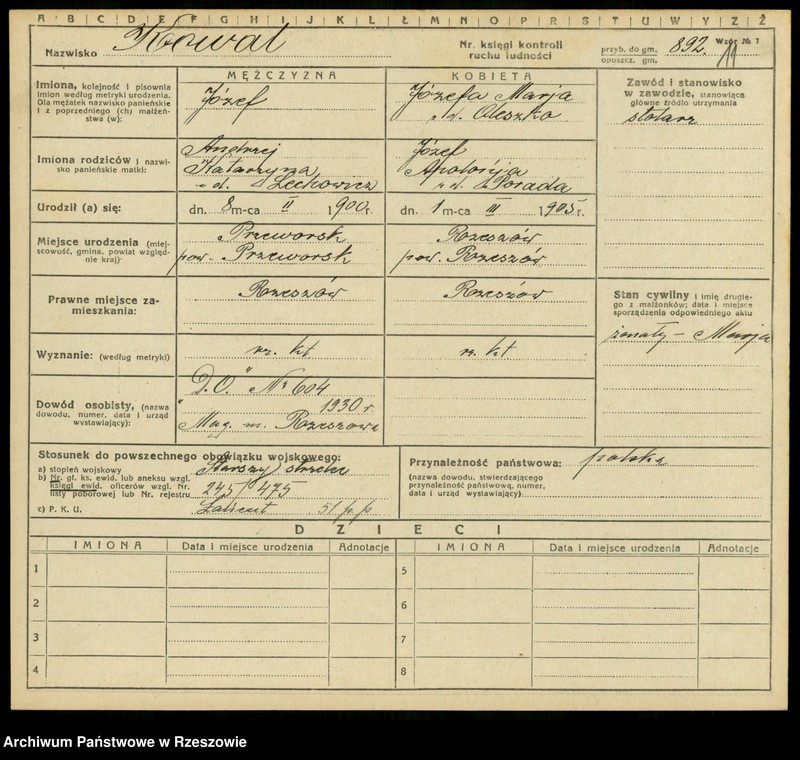 A B C D E F G H I J K L Ł M N O P R S T U W Y Z Ż
Nazwisko Kowal
Nr. księgi kontroli ruchu ludności
przyb. do gm. 892.
opuszcz. gm.
Wzór № 1
Imiona, kolejność i pisownia imion według metryki urodzenia. Dla mężatek nazwisko panieńskie i z poprzedniego (ch) małżeństwa (w):
MĘŻCZYZNA
Józef
KOBIETA
Józefa Marja
z d. Oleszko
Zawód i stanowisko w zawodzie, stanowiące główne źródło utrzymania
stolarz
Imiona rodziców i nazwisko panieńskie matki:
Andrzej
Katarzyna
z d. Lechowicz
Józef
Apolonja
z d. Porada
Urodził (a) się:
dn. 8 m-ca II 1900 r.
dn. 1 m-ca III 1905 r.
Miejsce urodzenia (miejscowość, gmina, powiat względnie kraj):
Przeworsk
pow. Przeworsk
Rzeszów
pow. Rzeszów
Prawne miejsce zamieszkania:
Rzeszów
Rzeszów
Stan cywilny i imię drugiego z małżonków; data i miejsce sporządzenia odpowiedniego aktu
żonaty – Marja
Wyznanie: (według metryki)
rz. kt
rz. kt
Dowód osobisty, (nazwa dowodu, numer, data i urząd wystawiający):
"D.O." Nr 604
1930 r.
Mag. m. Rzeszowa
Stosunek do powszechnego obowiązku wojskowego:
a) stopień wojskowy Starszy strzelec
b) Nr. gł. ks. ewid. lub aneksu wzgl. księgi ewid. oficerów wzgl. Nr. listy poborowej lub Nr. rejestru 245/475
c) P. K. U. Łańcut 51 p.p
Przynależność państwowa: polska
(nazwa dowodu, stwierdzającego przynależność państwową, numer, data i urząd wystawiający)
DZIECI
IMIONA Data i miejsce urodzenia Adnotacje IMIONA Data i miejsce urodzenia Adnotacje
1 5
2 6
3 7
4 8
Archiwum Państwowe w Rzeszowie